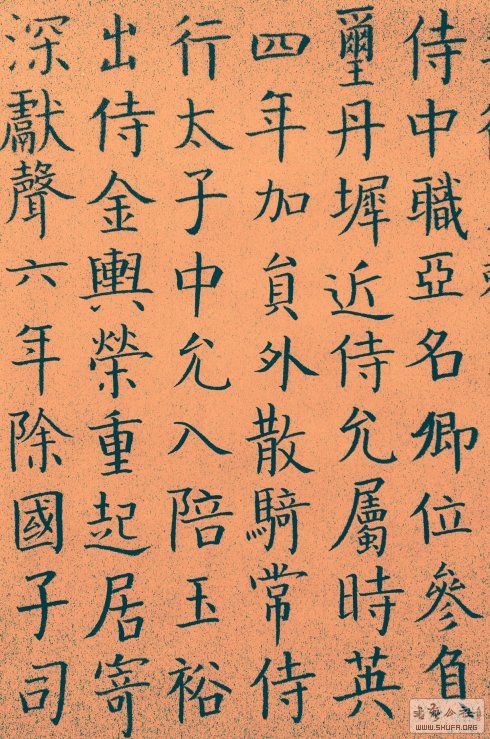 侍中職亞名卿位參負
璽丹墀近侍允屬時英
四年加員外散騎常侍
行太子中允入陪玉裕
出侍金輿榮重起居寄
深獻聲六年除國子司
WWW.SHUFA.ORG